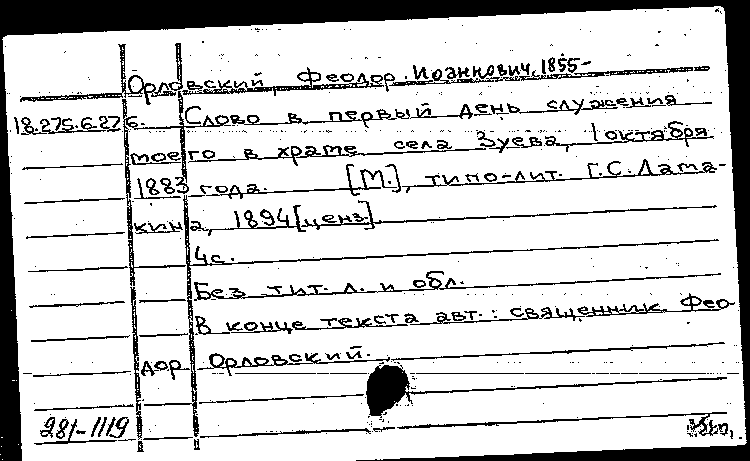 Орловский, Феодор Иоаннович, 1855-
18.275.6.276. Слово в первый день служения
моего в храме села Зуева, 1 октября
1883 года. [М.], типо-лит. Г.С. Лама-
кина, 1894 [ценз].
4с.
Без тит. л. и обл.
В конце текста авт.: священник Фео-
дор Орловский.
281-1119